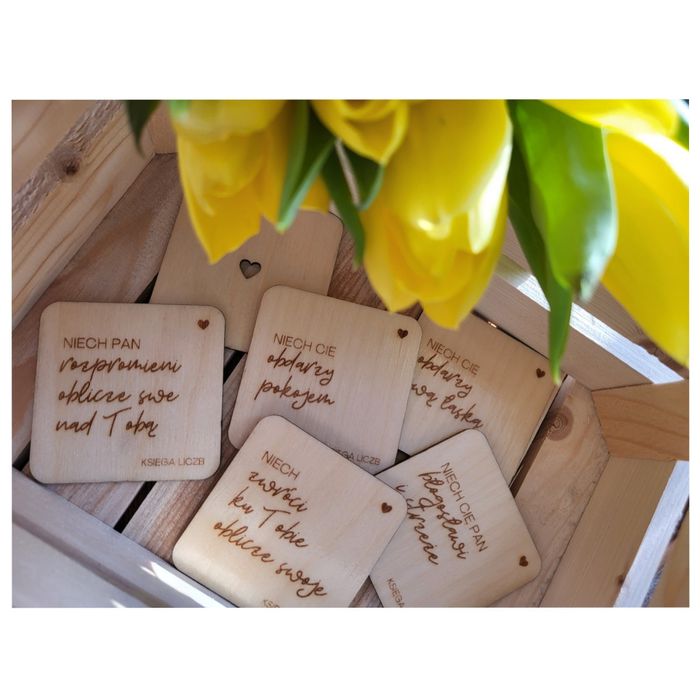 NIECH PAN
rozpromieni
oblicze swe
nad Tobą
KSIĘGA LICZB
NIECH CIĘ
obdarzy
pokojem
KSIĘGA LICZB
NIECH CIĘ
obdarzy
swą łaską
NIECH
zwróci
ku Tobie
oblicze swoje
NIECH CIĘ PAN
błogosławi
i strzeże
KSIĘG